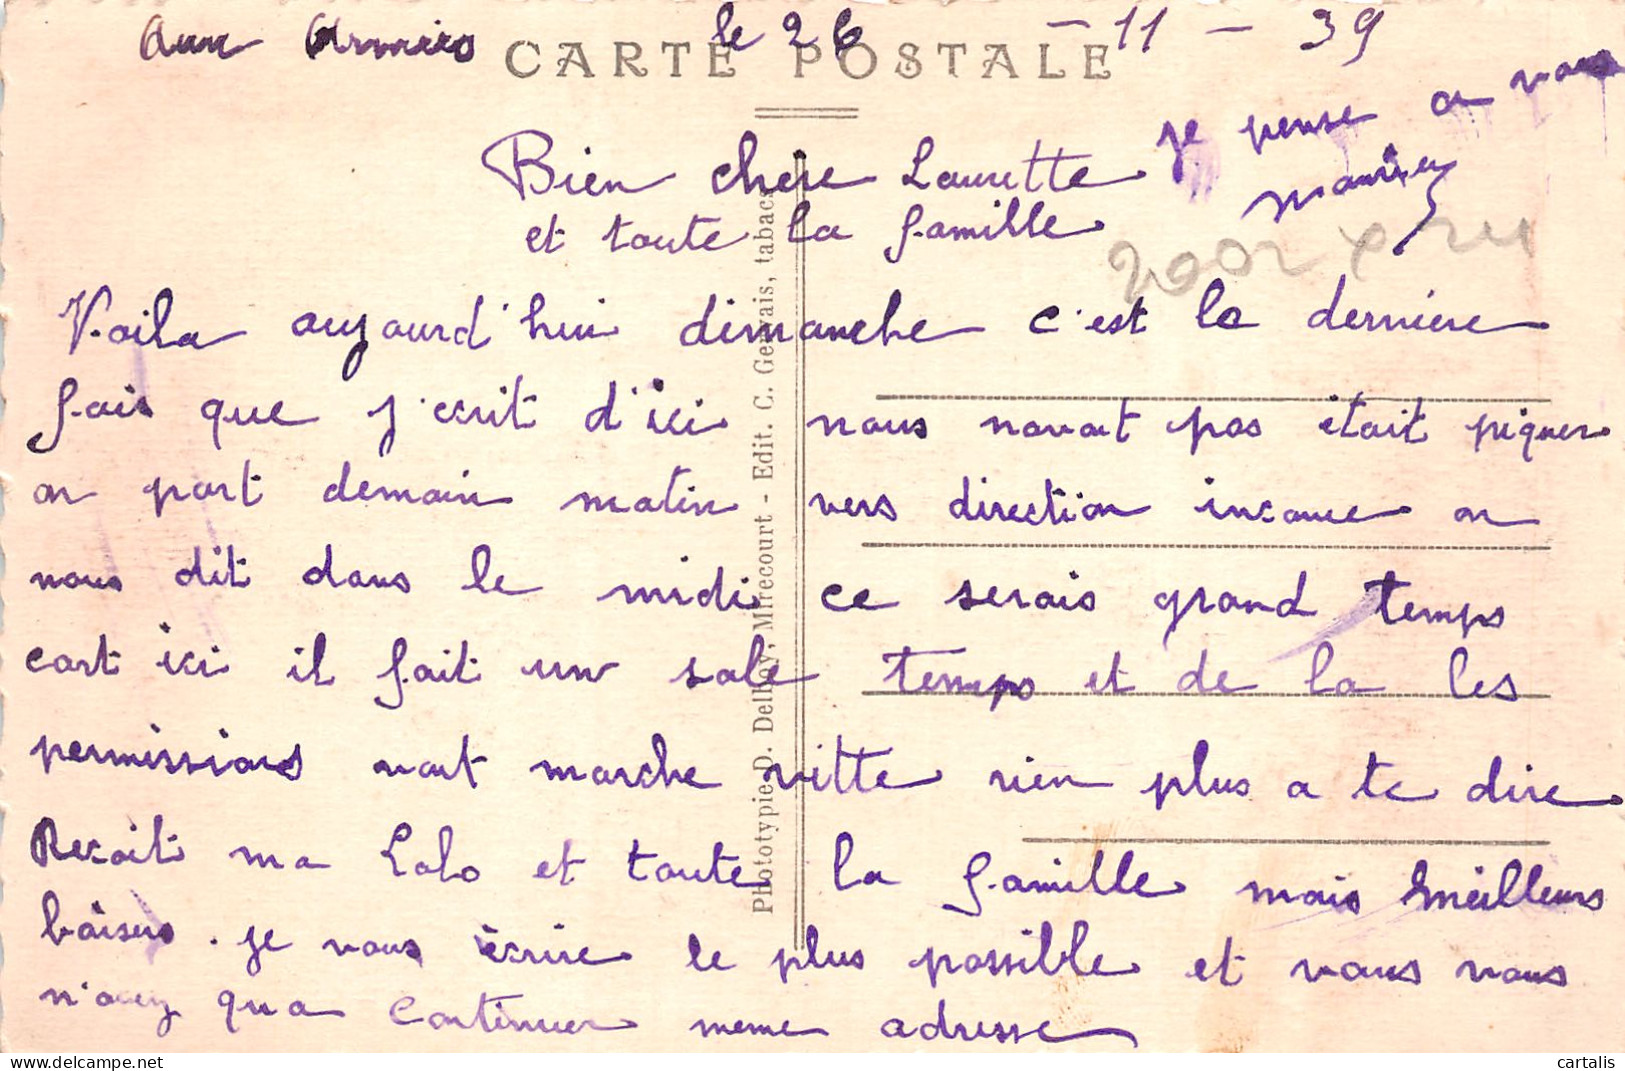 Aux Armées le 26 - 11 - 39
CARTE POSTALE
je pense a vous
Bien chere Laurette
et toute la famille
Voila aujourd'hui dimanche c'est la derniere
fois que j'ecrit d'ici nous navont pas était piquer
on part demain matin vers direction inconue on
nous dit dans le midi ce serais grand temps
cart ici il fait un sale temps et de la les
permissions vont marche vitte rien plus a te dire
Recoit ma Lolo et toute la famille mais meilleurs
baisers. je vous écrire le plus possible et vous vous
n'avez qu a continuer meme adresse
Phototypie D. Delboy, Mirecourt - Edit. C. Gervais, tabacs
cartalis